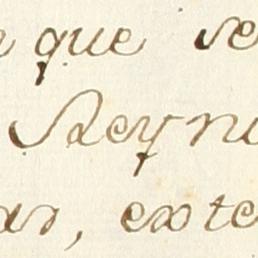 que se
Reyn
as, exte